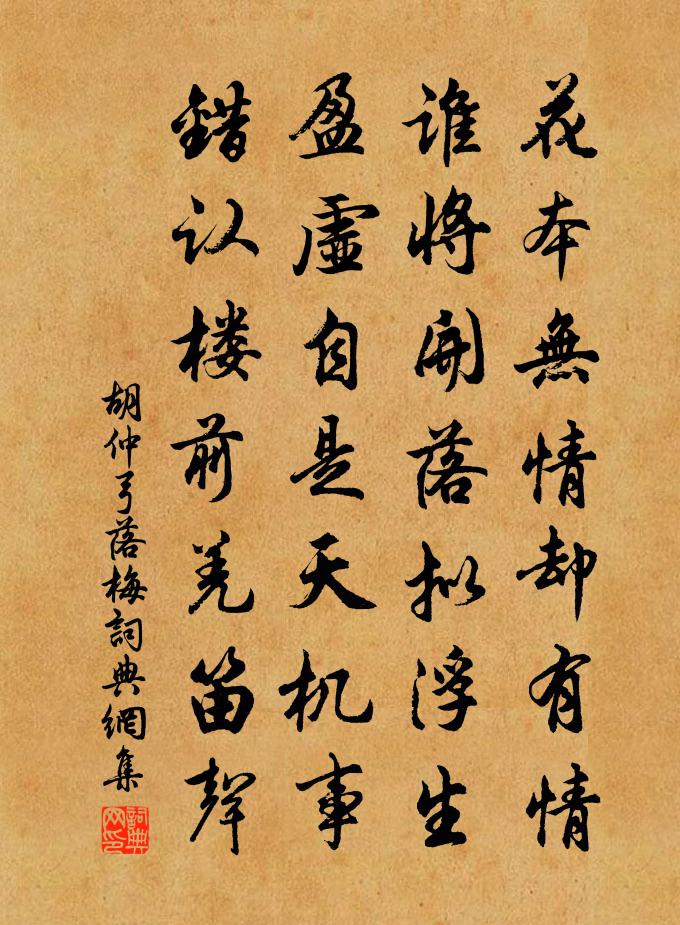 花本無情却有情
谁將開落拟浮生
盈虛自是天机事
錯认楼前羌笛聲
胡仲弓落梅詞典網集
詞典网印